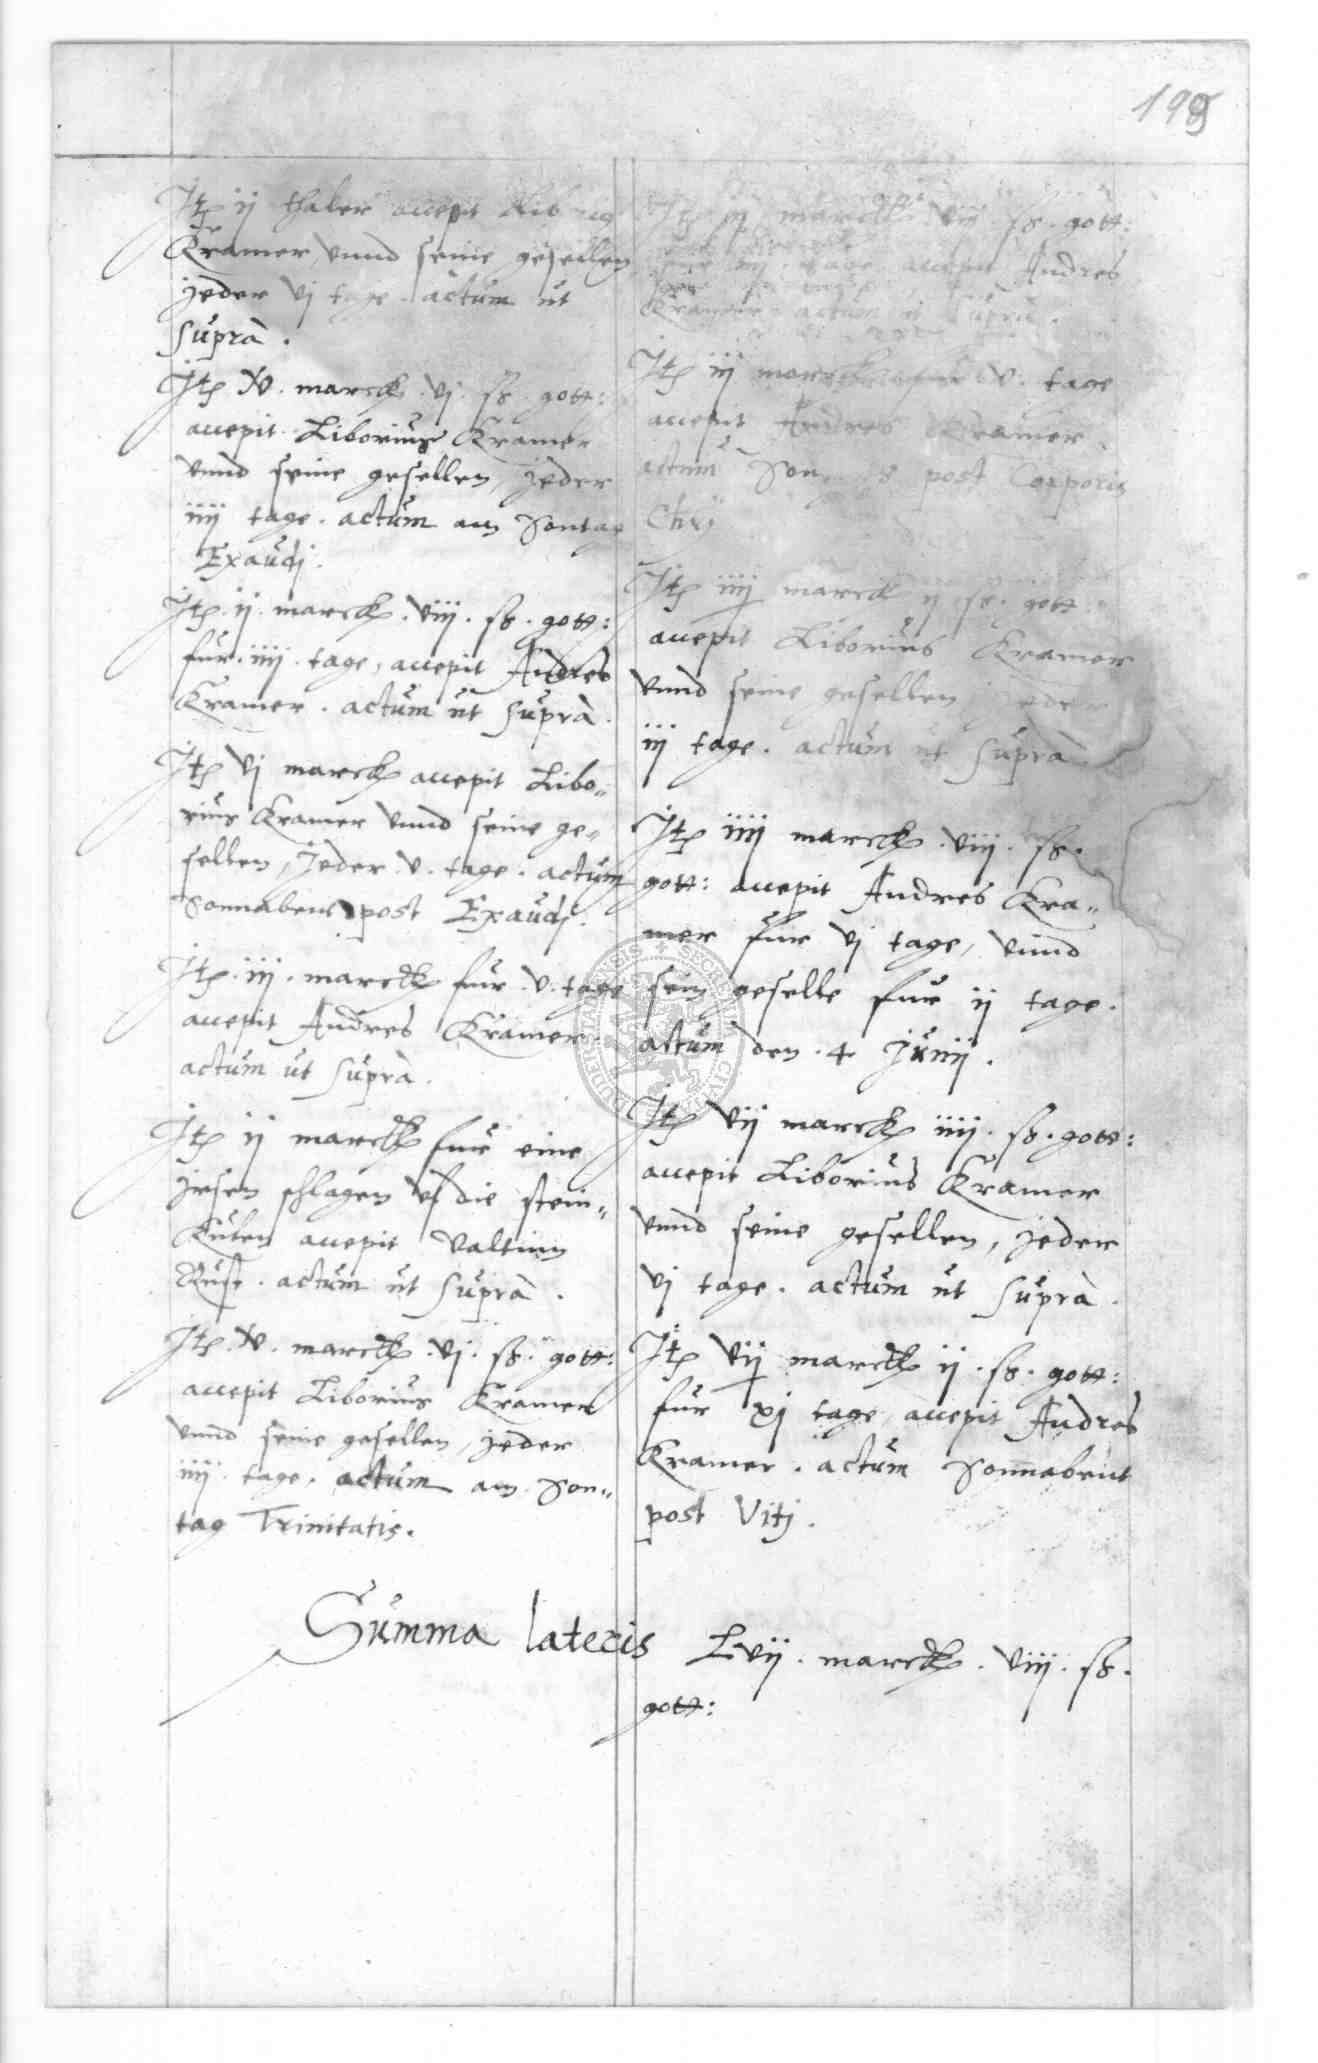 195
Jtem ij thaler accepit Liborius
Kramer vnnd seine gesellen
jeder vj tage. actum ut
suprà.
Jtem v. marck. vj. ß. gott:
accepit Liborius Kramer
vnnd seine gesellen, jeder
iiij tage. actum am Sontag
Exaudj.
Jtem. ij. marck. viij. ß. gott:
fur. iiij. tage, accepit Andres
Kramer. actum ut suprà.
Jtem vj marck accepit Libo„
rius Kramer vnnd seine ge„
sellen, Jeder. v. tage. actum
Sonnabent post Exaudj.
Jtem. iij. marck fur. v. tage
accepit Andres Kramer.
actum ut suprà.
Jtem ij marck fur eine
jrsen schlagen vf die stein„
Kulen accepit Valtinn
Rust. actum ut suprà.
Jtem. v. marck. vj. ß. gott:
accepit Liborius Kramer
vnnd seine gesellen, jeder
iiij. tage. actum am Son„
tag Trinitatis.
Jtem marck viij. ß. gott:
tage accepit Andres
Kramer. actum ut suprà.
Jtem iij marck v. tage
accepit Andres Kramer.
actum post Corporis
Chrj
Jtem iiij marck ij ß. gott:
accepit Liborius Kramer
vnnd seine gesellen jeder
iij tage. actum ut suprà
Jtem iiij marck. viij. ß.
gott: accepit Andres Kra„
mer fur vj tage, vnnd
sein geselle fur ij tage.
actum den. 4 Junij.
Jtem vij marck iiij. ß. gott:
accepit Liborius Kramer
vnnd seine gesellen, jeder
vj tage. actum ut suprà.
Jtem vij marck ij. ß. gott:
fur xj tage, accepit Andres
Kramer. actum Sonnabent
post Vitj.
Summa lateris Lvij. marck. viij. ß.
gott: